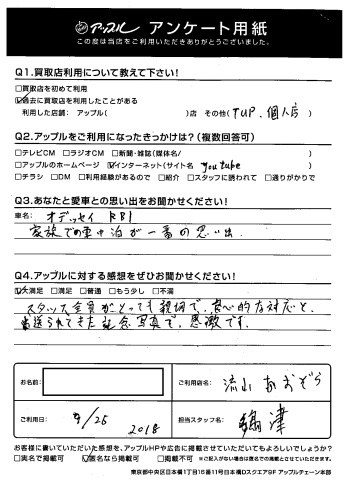 アップル アンケート用紙
この度は当店をご利用いただきありがとうございました。
Q1.買取店利用について教えて下さい!
□買取店を初めて利用
☑過去に買取店を利用したことがある
利用した店舗: アップル( )店 その他( T UP、個人店 )
Q2.アップルをご利用になったきっかけは?(複数回答可)
□テレビCM □ラジオCM □新聞・雑誌(媒体名/ )
□アップルのホームページ ☑インターネット(サイト名 youtube )
□チラシ □DM □利用経験があるので □紹介 □スタッフに誘われて □通りがかりで
Q3.あなたと愛車との思い出をお聞かせください!
車名: オデッセイ RB1
家族での車中泊が一番の思い出.
Q4.アップルに対する感想をぜひお聞かせください!
☑大満足 □満足 □普通 □もう少し □不満
スタッフ全員がとっても親切で、良心的な対応と、
当送られてきた記念写真で、感激です。
お名前:
ご利用店名: 流山おおぞら
ご利用日: 9/25 2018
担当スタッフ名: 津
お客様に書いていただいた感想を、アップルHPや広告に掲載させていただいてもよろしいでしょうか?
□実名で掲載可 ☑匿名なら掲載可 □掲載不可 ※ご記入がない場合は匿名での掲載とさせていただきます。
東京都中央区日本橋1丁目15番11号日本橋Dスクエア9F アップルチェーン本部